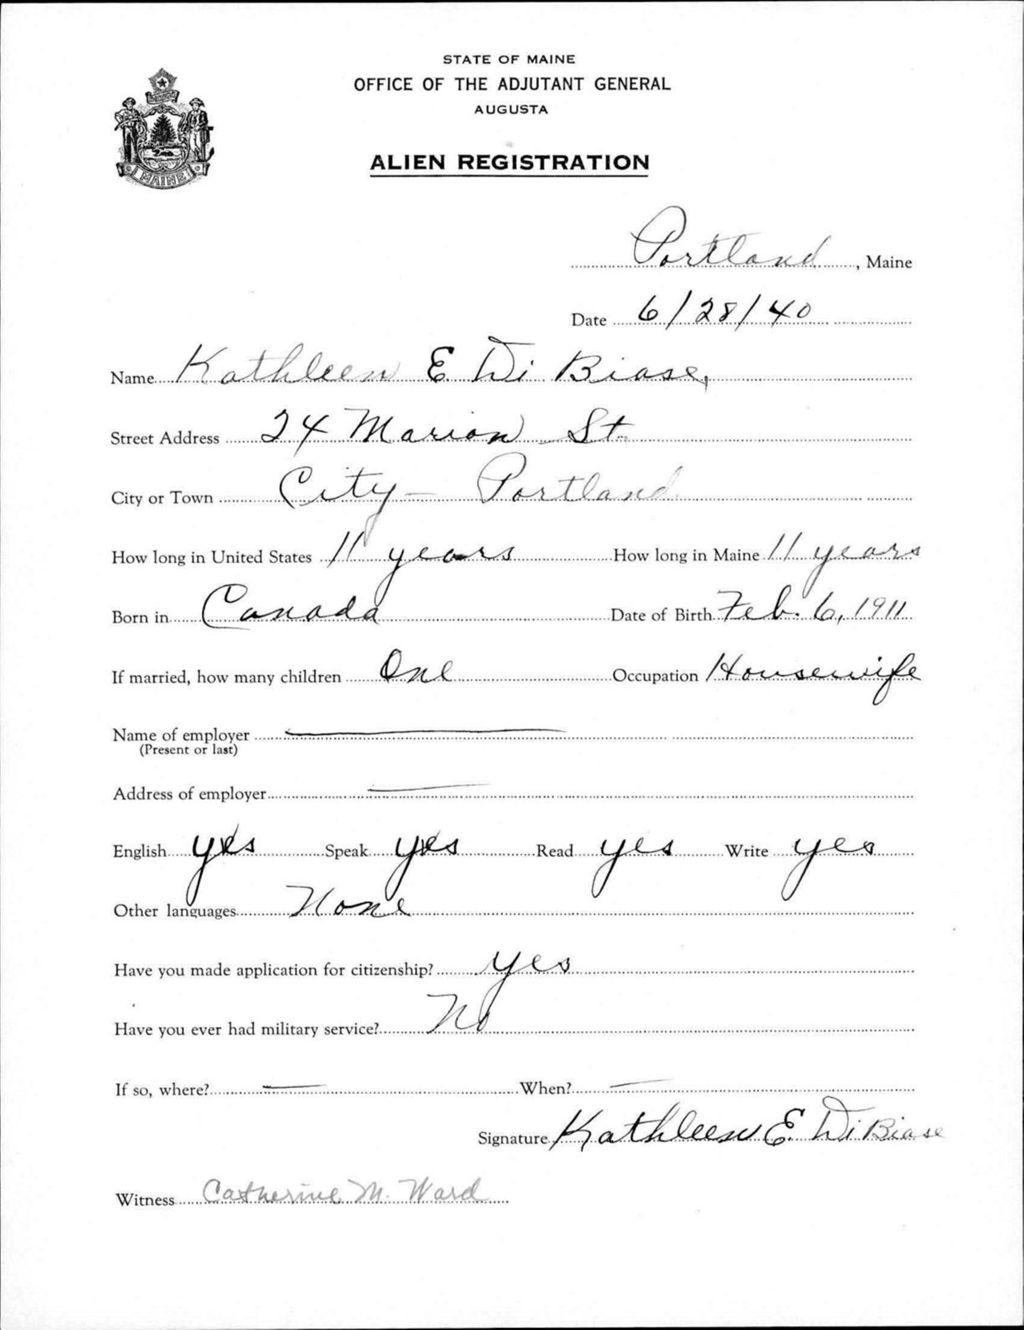 STATE OF MAINE
OFFICE OF THE ADJUTANT GENERAL
AUGUSTA
MAINE
ALIEN REGISTRATION
Portland, Maine
Date 6/28/40
Name Kathleen E Di Biase,
Street Address 24 Marion St.
City or Town City - Portland
How long in United States 11 years How long in Maine 11 years
Born in Canada Date of Birth Feb. 6, 1911
If married, how many children One Occupation Housewife
Name of employer
(Present or last)
Address of employer
English yes Speak yes Read yes Write yes
Other languages None
Have you made application for citizenship? yes
Have you ever had military service? No
If so, where? When?
Signature Kathleen E. Di Biase
Witness Catherine M. Ward